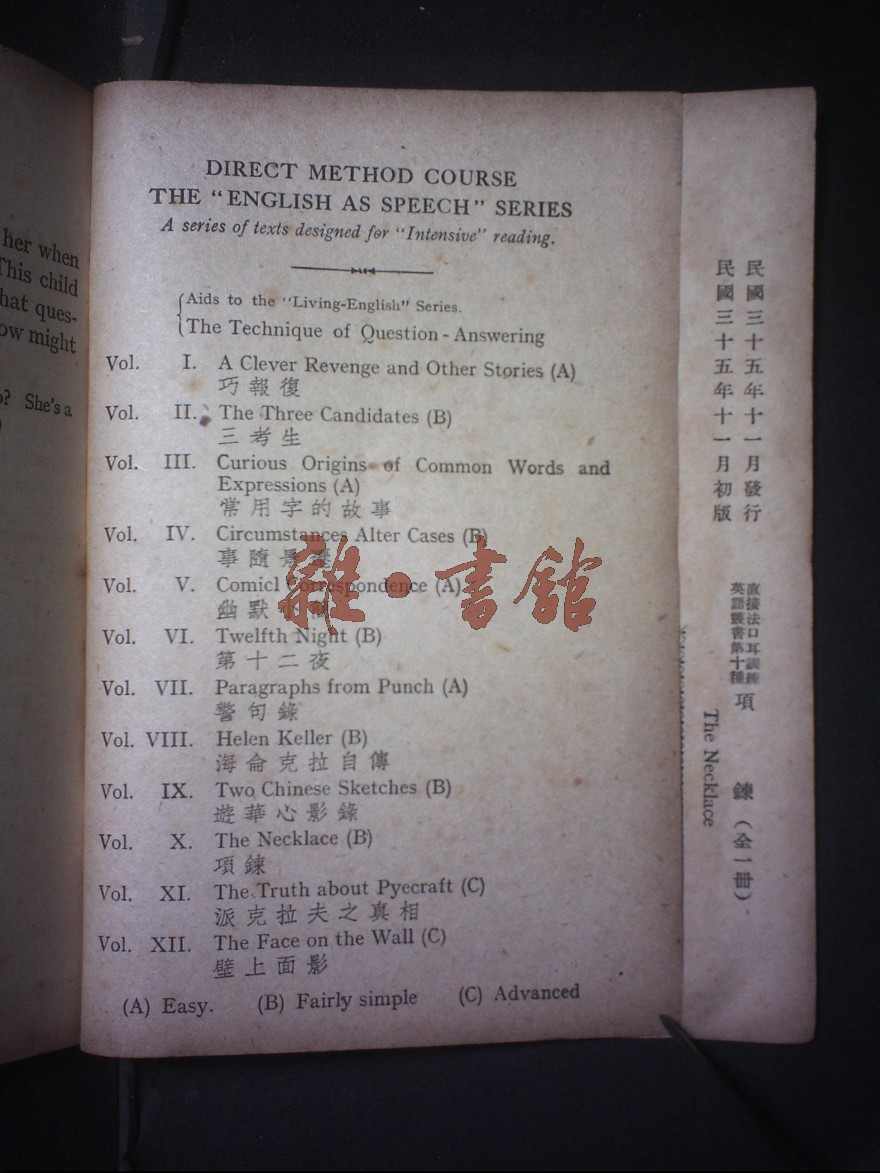 her when
This child
hat ques-
ow might
o? She's a
DIRECT METHOD COURSE
THE "ENGLISH AS SPEECH" SERIES
A series of texts designed for "Intensive" reading.
Aids to the "Living-English" Series.
The Technique of Question-Answering
Vol. I. A Clever Revenge and Other Stories (A)
巧報復
Vol. II. The Three Candidates (B)
三考生
Vol. III. Curious Origins of Common Words and
Expressions (A)
常用字的故事
Vol. IV. Circumstances Alter Cases (B)
事隨
Vol. V. Comicl Correspondence (A)
幽默
Vol. VI. Twelfth Night (B)
第十二夜
Vol. VII. Paragraphs from Punch (A)
警句錄
Vol. VIII. Helen Keller (B)
海侖克拉自傳
Vol. IX. Two Chinese Sketches (B)
遊華心影錄
Vol. X. The Necklace (B)
項鍊
Vol. XI. The Truth about Pyecraft (C)
派克拉夫之真相
Vol. XII. The Face on the Wall (C)
壁上面影
(A) Easy. (B) Fairly simple (C) Advanced
雜·書館
民國三十五年十一月發行
民國三十五年十一月初版
直接法口耳訓練
英語叢書第十種
項鍊(全一冊)
The Necklace